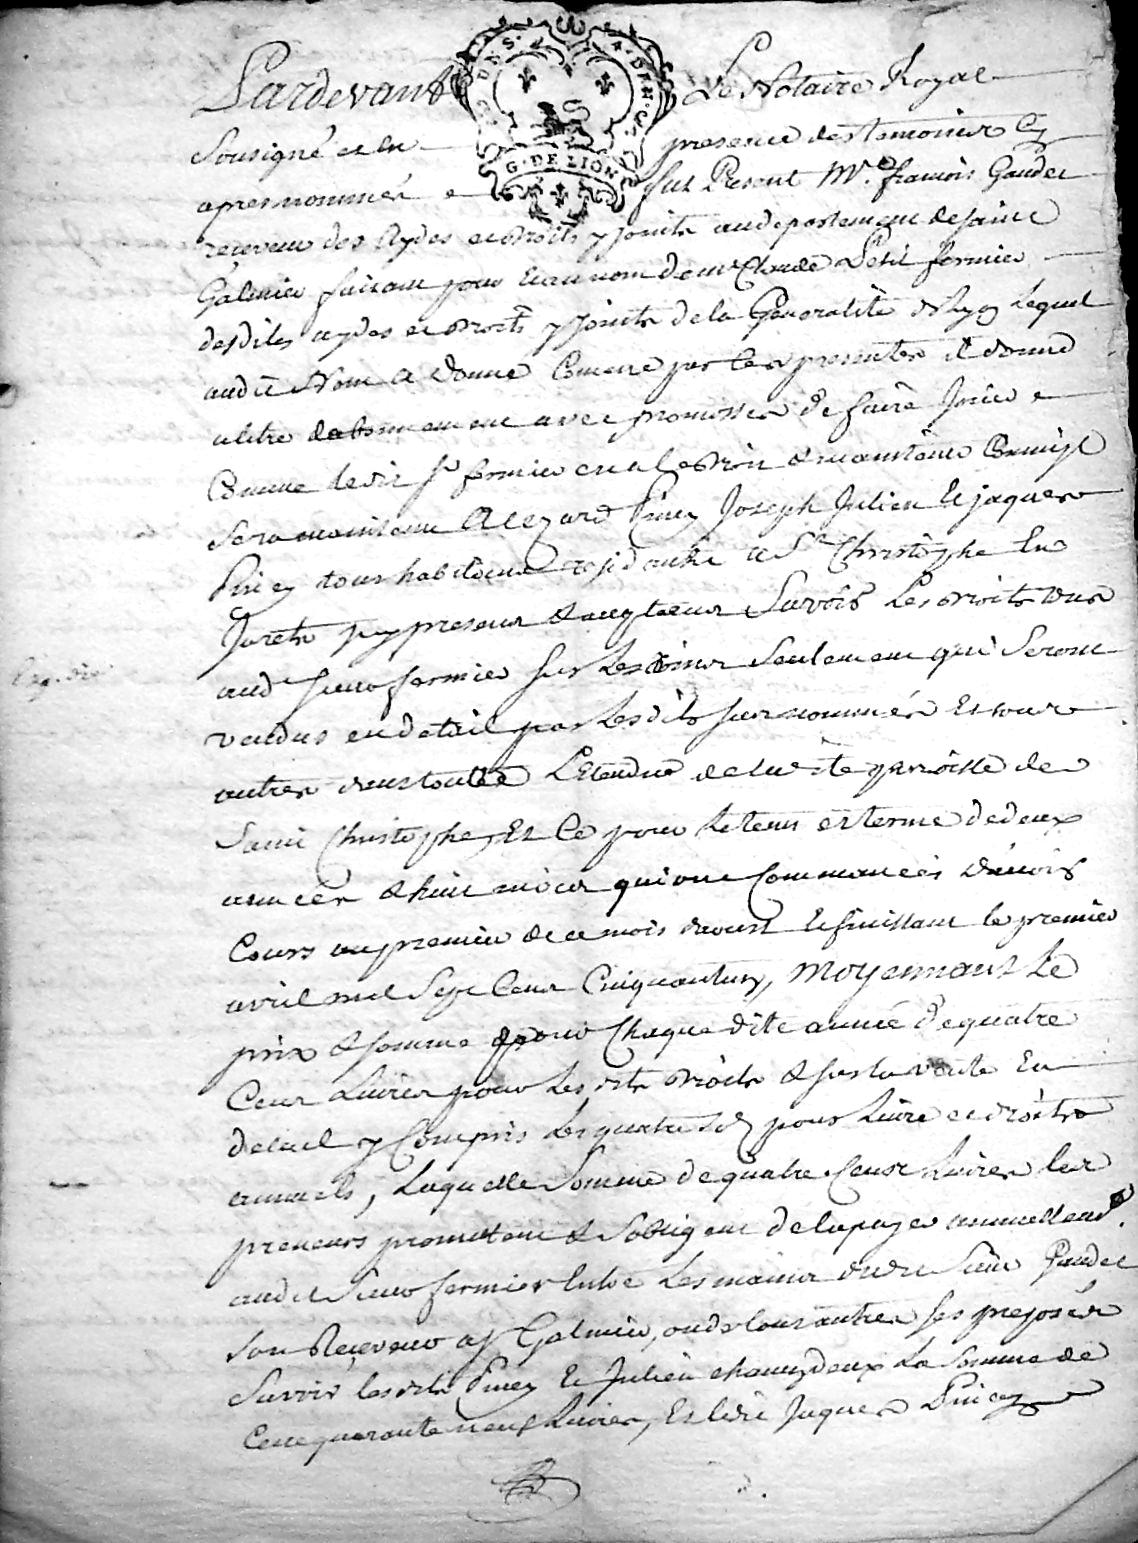 Pardevant Le Notaire Royal
G. DE LION
Sousigné et en presence des temoins cy
apres nommés fut Present Mr. françois Gaudet
receveur des Aydes et droits y joints au departement de saint
Galmier faisant pour et au nom de me Claude Petit fermier
desdites aydes et droits y joints de la Generalité de Lyon lequel
audit Nom a donné Comme par les presentes il donne
a titre dabonnement avec promesse de faire jouir
Comme ledit Sr fermier en a le droit & maintenir Comme il
sera maintenu Piney Joseph Julien et jaques
Piney tous habitans residants a St Christophe En
Jarets y presens & acceptans Savoir Les droits dus
audt sieur fermier sur Les vins Seulement qui Seront
vendus en detail par Lesdits surnommés Et tous
autres dans toutte L'Etendue de ladite parroisse de
Saint Christophe, Et Ce pour le tems et terme de deux
années & huit mois qui ont Commancés davoir
Cours au premier de ce mois daoust et finissant le premier
avril mil Sept Cens Cinquante, Moyennant Le
prix & somme pour Chaque dite année de quatre
Cens Livres pour Les dits droits & sur la vente En
detail y Compris Les quatre sols pour Livre et droits
annuels, Laquelle Somme de quatre Cens Livres les
preneurs promettent & sobligent de la payer annuellemt.
audit Sieur fermier Entre Les mains dudit Sieur Gaudet
son Receveur a St Galmier, ou de tous autres ses preposés
Savoir lesdits Piney Et Julien chacun deux La Somme de
Cent quarante neuf Livres, Et ledit Jaques Piney